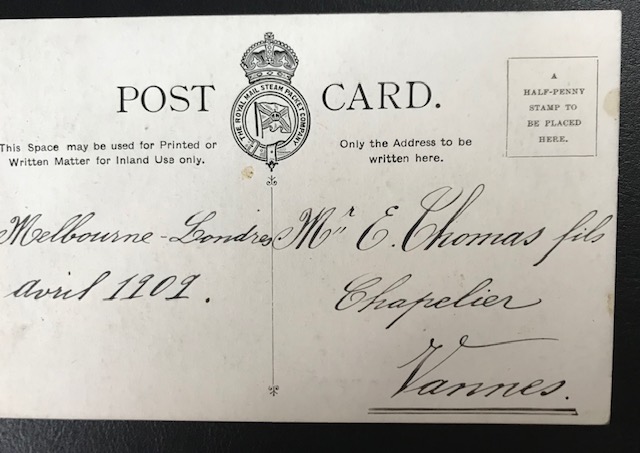 POST CARD.
THE ROYAL MAIL STEAM PACKET COMPANY
A
HALF-PENNY
STAMP TO
BE PLACED
HERE.
This Space may be used for Printed or
Written Matter for Inland Use only.
Only the Address to be
written here.
Melbourne - Londres
avril 1909.
Mr E. Thomas fils
Chapelier
Vannes.